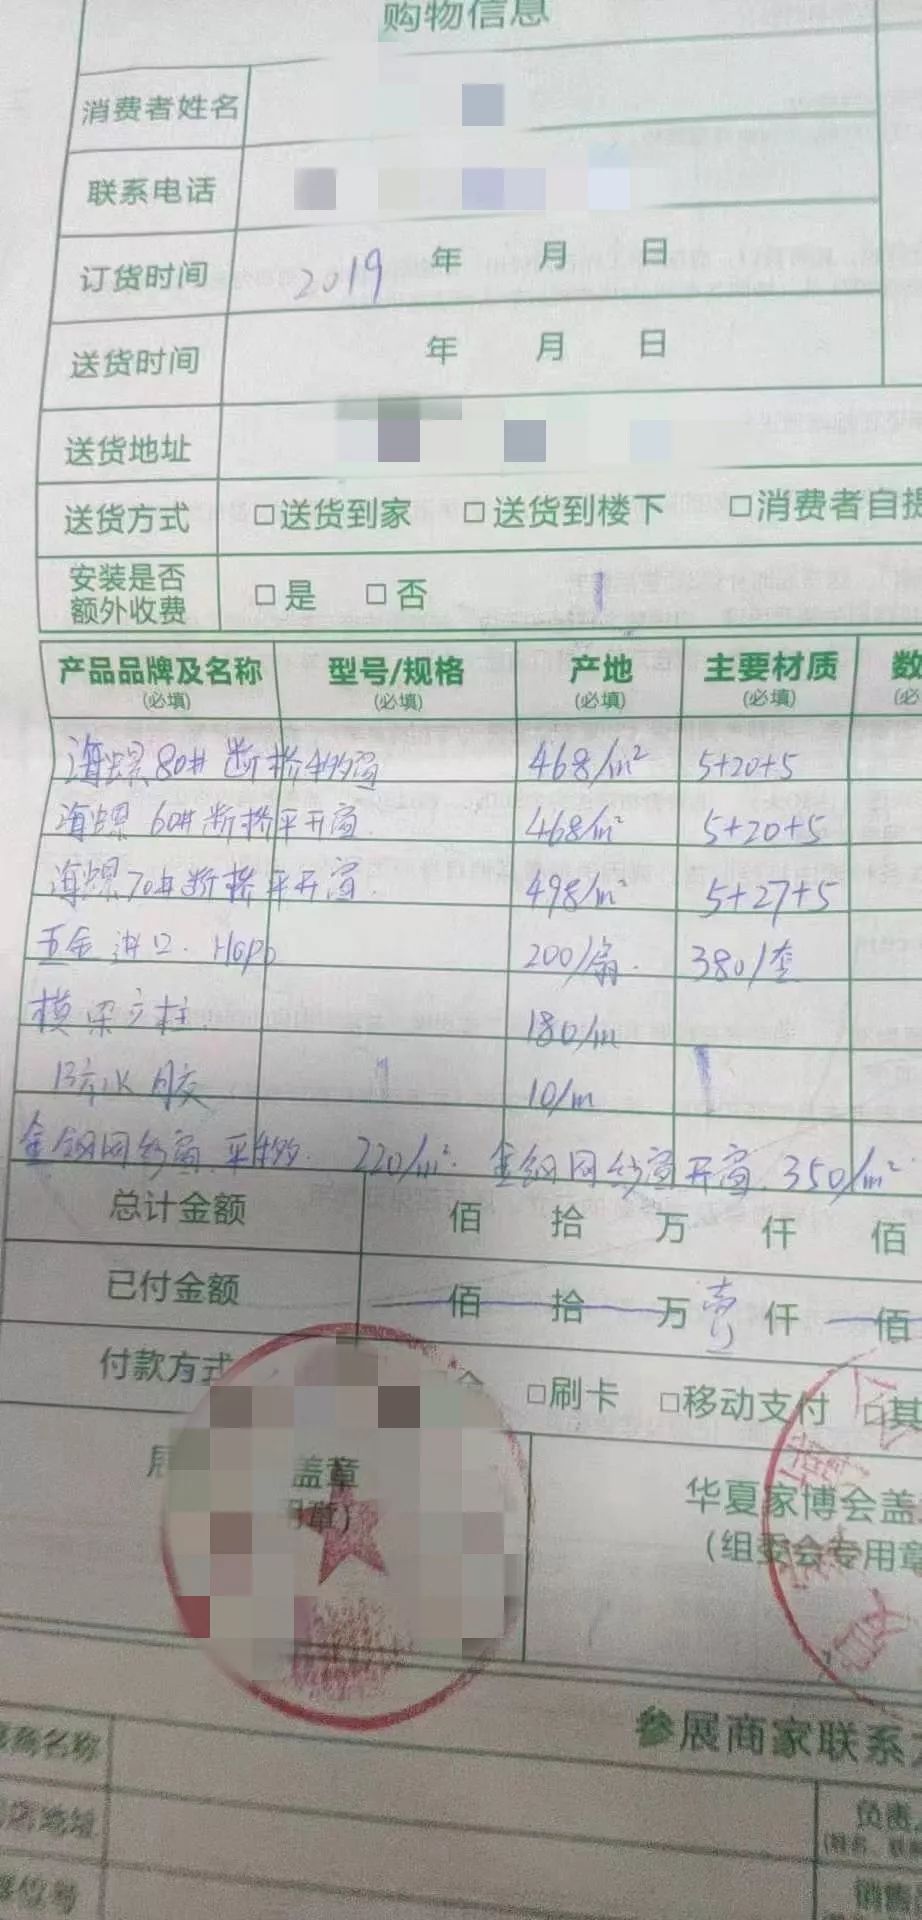 购物信息
消费者姓名
联系电话
订货时间 2019 年 月 日
送货时间 年 月 日
送货地址
送货方式 □送货到家 □送货到楼下 □消费者自提
安装是否额外收费 □是 □否
产品品牌及名称(必填) 型号/规格(必填) 产地(必填) 主要材质(必填) 数
海螺80#断桥推拉窗 468/m² 5+20+5
海螺60#断桥平开窗 468/m² 5+20+5
海螺70#断桥平开窗 498/m² 5+27+5
五金进口.Hopp 200/扇. 380/套
横梁立柱. 180/m
防水胶 10/m
金钢网纱窗.平推. 220/m². 金钢网纱窗开窗.350/m²
总计金额 佰 拾 万 仟 佰
已付金额 佰 拾 万 壹 仟 佰
付款方式 □刷卡 □移动支付 □其
盖章
华夏家博会盖
(组委会专用章
参展商家联系
负责
销售